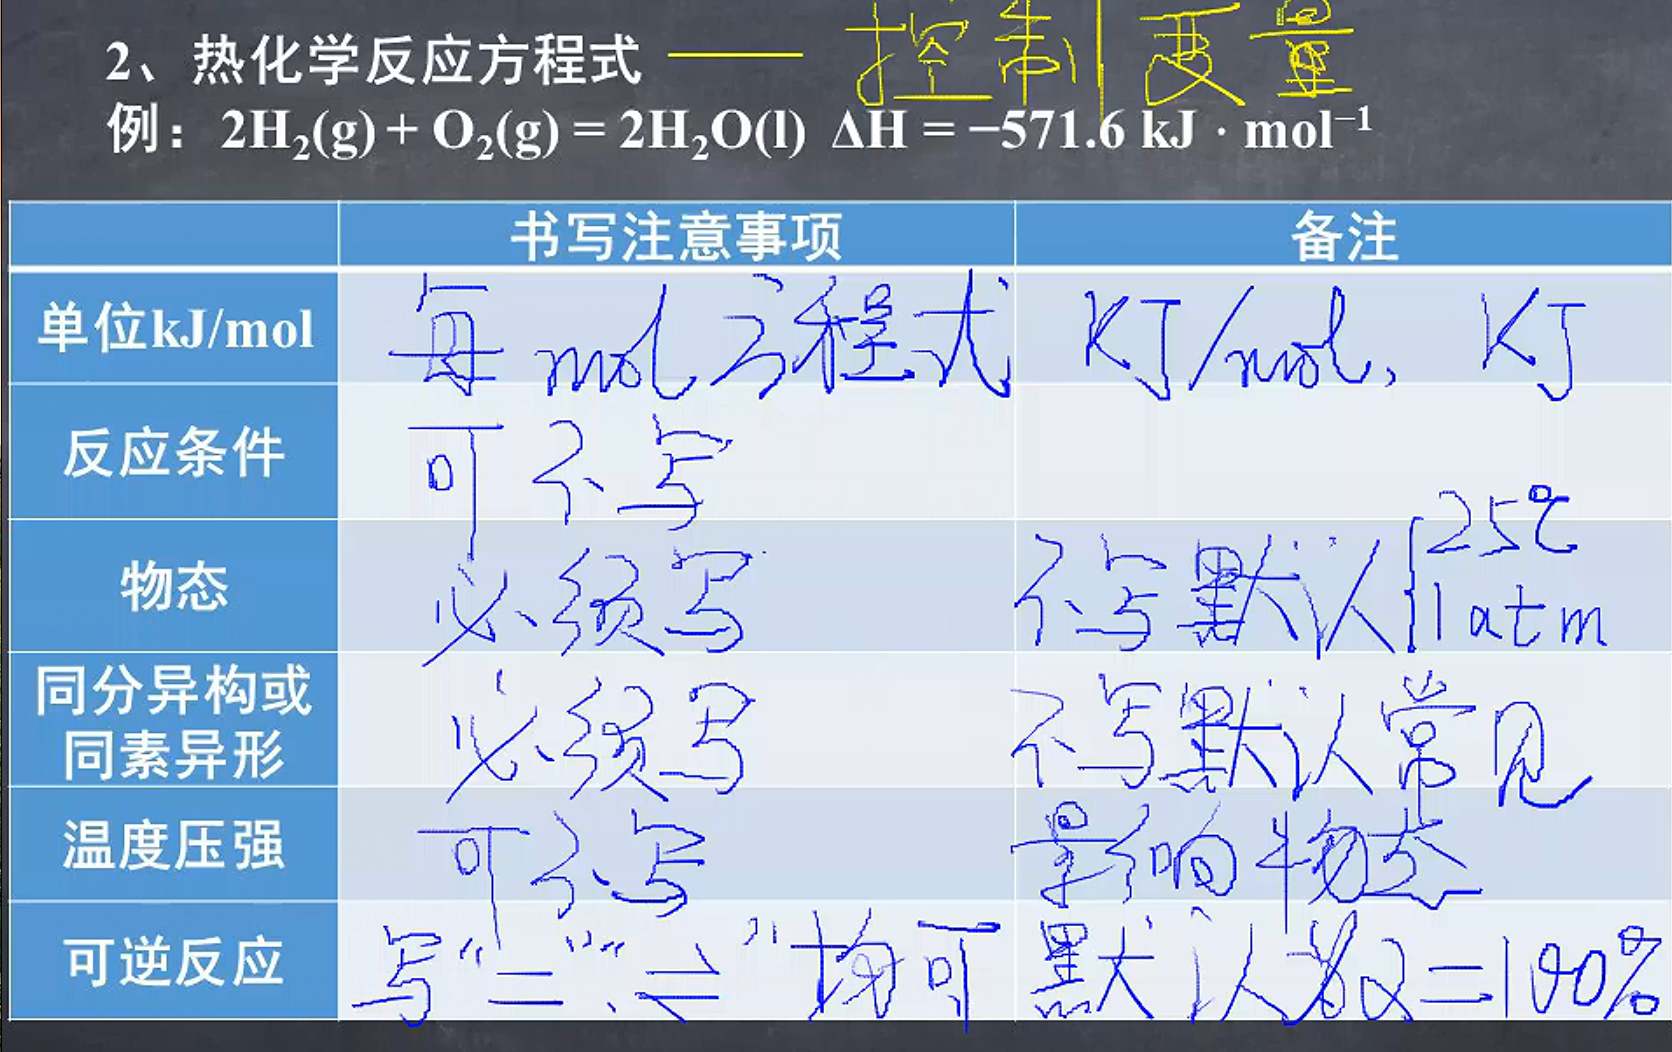 2、热化学反应方程式 —— 控制变量
例：2H₂(g) + O₂(g) = 2H₂O(l) ΔH = −571.6 kJ · mol⁻¹
书写注意事项 备注
单位kJ/mol 每mol方程式 KJ/mol、KJ
反应条件 可不写
物态 必须写 不写默认{25℃ 1atm
同分异构或同素异形 必须写 不写默认常见
温度压强 可不写 影响物态
可逆反应 写“=”“⇌”均可 默认α=100%